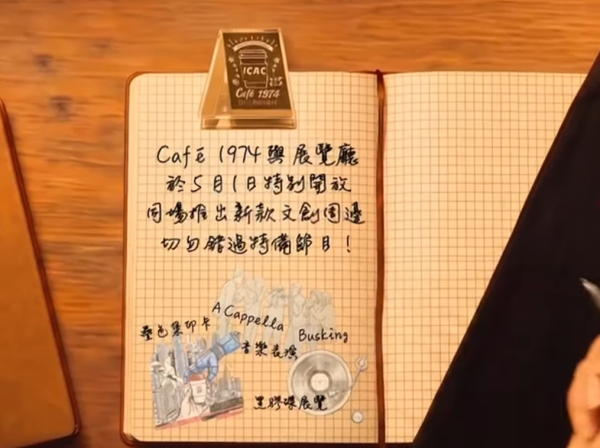 ICAC
Café 1974
Café 1974與展覽廳
於5月1日特別開放
同場推出新款文創周邊
切勿錯過特備節目!
A Cappella
Busking
疊色集印卡
音樂表演
黑膠碟展覽